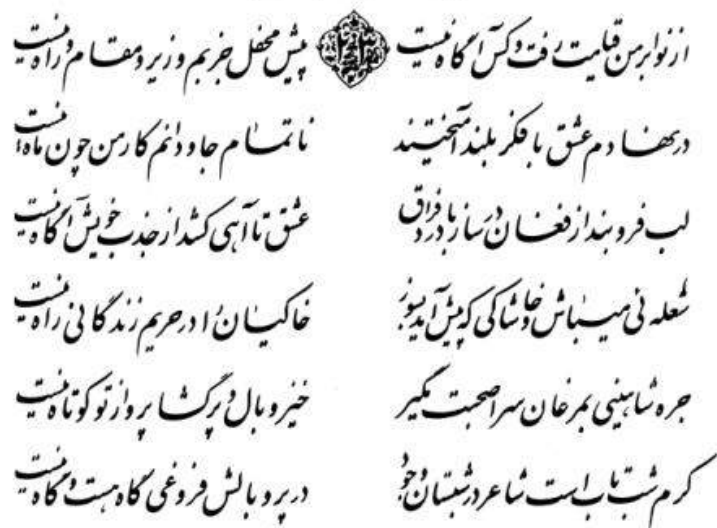 از نوا بر من قیامت رفت و کس آگاه نیست پیش محفل جز بم و زیر و مقام و راه نیست
در نهادم عشق با فکر بلند آمیختند ناتمام جاودانم کار من چون ماه نیست
لب فرو بند از فغان در ساز با درد فراق عشق تا آهی کشد از جذب خویش آگاه نیست
شعله ئی میباش و خاشاکی که پیش آید بسوز خاکیان را در حریم زندگانی راه نیست
جره شاهینی بمرغان سرا صحبت مگیر خیز و بال و پر گشا پرواز تو کوتاه نیست
کرم شب تاب است شاعر در شبستان وجود در پر و بالش فروغی گاه هست و گاه نیست